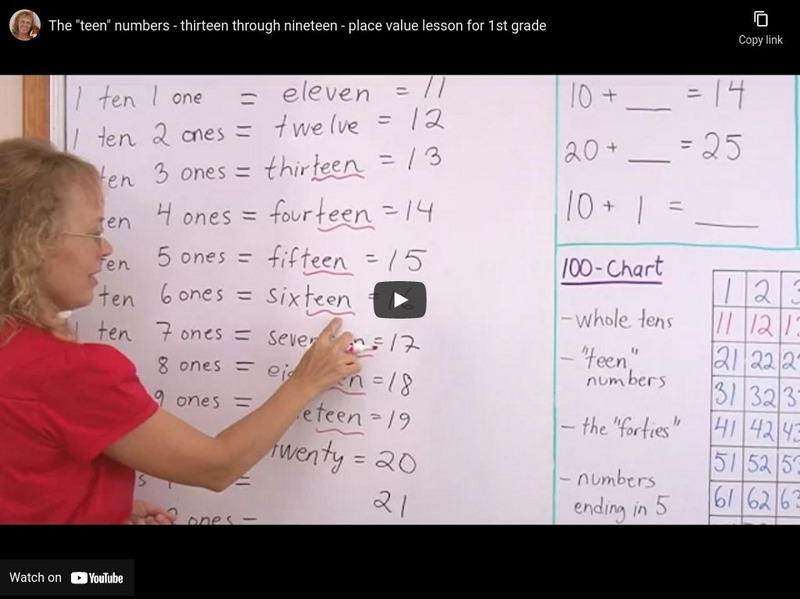 The "teen" numbers - thirteen through nineteen - place value lesson for 1st grade
Copy link
1 ten 1 one = eleven = 11
1 ten 2 ones = twelve = 12
ten 3 ones = thirteen = 13
en 4 ones = fourteen = 14
en 5 ones = fifteen = 15
ten 6 ones = sixteen =
1 ten 7 ones = seven = 17
8 ones = een = 18
9 ones = eteen = 19
twenty = 20
=
21
ones =
10 + ___ = 14
20 + ___ = 25
10 + 1 = ___
100-Chart
- whole tens
- "teen"
numbers
- the "forties"
- numbers
ending in 5
1 2 3
11 12 1
21 22 2
31 32 3
41 42 43
51 52 53
61 62 63
Watch on YouTube